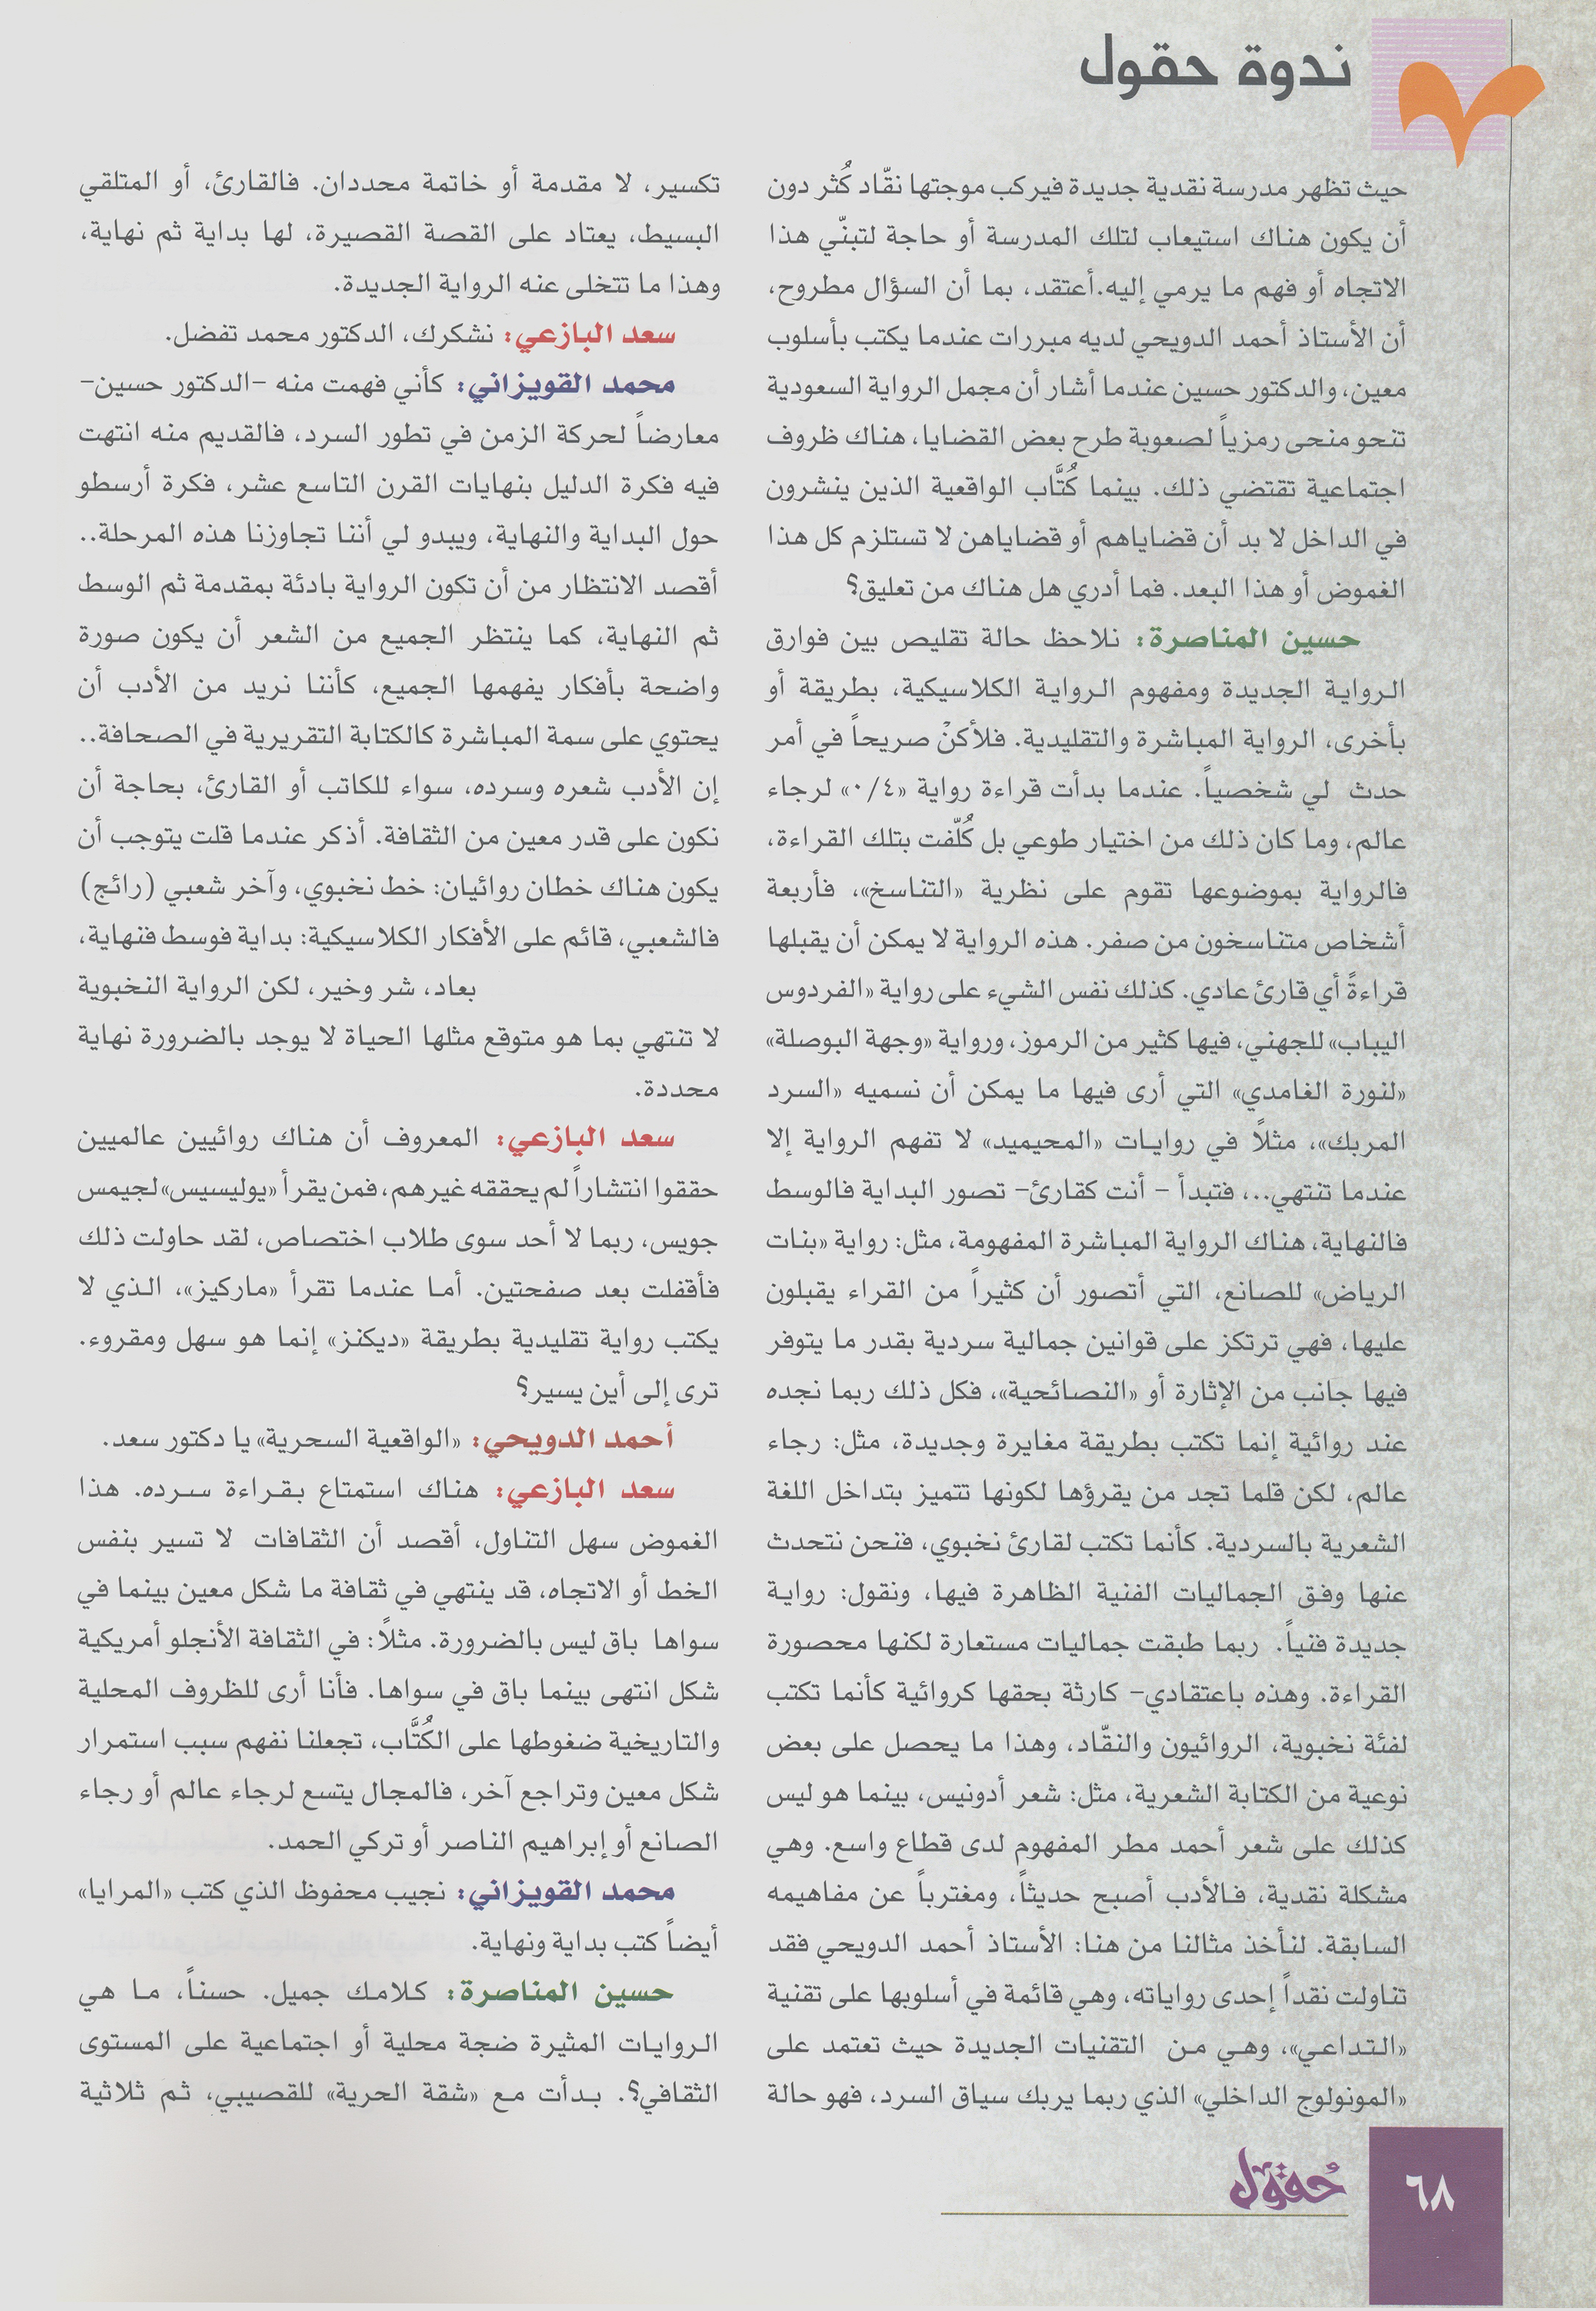 ندوة حقول
حيث تظهر مدرسة نقدية جديدة فيركب موجتها نقّاد كُثر دون
أن يكون هناك استيعاب لتلك المدرسة أو حاجة لتبنّي هذا
الاتجاه أو فهم ما يرمي إليه.أعتقد، بما أن السؤال مطروح،
أن الأستاذ أحمد الدويحي لديه مبررات عندما يكتب بأسلوب
معين، والدكتور حسين عندما أشار أن مجمل الرواية السعودية
تنحو منحى رمزياً لصعوبة طرح بعض القضايا، هناك ظروف
اجتماعية تقتضي ذلك. بينما كُتَّاب الواقعية الذين ينشرون
في الداخل لا بد أن قضاياهم أو قضاياهن لا تستلزم كل هذا
الغموض أو هذا البعد. فما أدري هل هناك من تعليق؟
حسين المناصرة: نلاحظ حالة تقليص بين فوارق
الرواية الجديدة ومفهوم الرواية الكلاسيكية، بطريقة أو
بأخرى، الرواية المباشرة والتقليدية. فلأكنْ صريحاً في أمر
حدث لي شخصياً. عندما بدأت قراءة رواية «٠/٤» لرجاء
عالم، وما كان ذلك من اختيار طوعي بل كُلّفت بتلك القراءة،
فالرواية بموضوعها تقوم على نظرية «التناسخ»، فأربعة
أشخاص متناسخون من صفر. هذه الرواية لا يمكن أن يقبلها
قراءةً أي قارئ عادي. كذلك نفس الشيء على رواية «الفردوس
اليباب» للجهني، فيها كثير من الرموز، ورواية «وجهة البوصلة»
«لنورة الغامدي» التي أرى فيها ما يمكن أن نسميه «السرد
المربك»، مثلاً في روايات «المحيميد» لا تفهم الرواية إلا
عندما تنتهي..، فتبدأ - أنت كقارئ- تصور البداية فالوسط
فالنهاية، هناك الرواية المباشرة المفهومة، مثل: رواية «بنات
الرياض» للصانع، التي أتصور أن كثيراً من القراء يقبلون
عليها، فهي ترتكز على قوانين جمالية سردية بقدر ما يتوفر
فيها جانب من الإثارة أو «النصائحية»، فكل ذلك ربما نجده
عند روائية إنما تكتب بطريقة مغايرة وجديدة، مثل: رجاء
عالم، لكن قلما تجد من يقرؤها لكونها تتميز بتداخل اللغة
الشعرية بالسردية. كأنما تكتب لقارئ نخبوي، فنحن نتحدث
عنها وفق الجماليات الفنية الظاهرة فيها، ونقول: رواية
جديدة فنياً. ربما طبقت جماليات مستعارة لكنها محصورة
القراءة. وهذه باعتقادي- كارثة بحقها كروائية كأنما تكتب
لفئة نخبوية، الروائيون والنقّاد، وهذا ما يحصل على بعض
نوعية من الكتابة الشعرية، مثل: شعر أدونيس، بينما هو ليس
كذلك على شعر أحمد مطر المفهوم لدى قطاع واسع. وهي
مشكلة نقدية، فالأدب أصبح حديثاً، ومغترباً عن مفاهيمه
السابقة. لنأخذ مثالنا من هنا: الأستاذ أحمد الدويحي فقد
تناولت نقداً إحدى رواياته، وهي قائمة في أسلوبها على تقنية
«التداعي»، وهي من التقنيات الجديدة حيث تعتمد على
«المونولوج الداخلي» الذي ربما يربك سياق السرد، فهو حالة
تكسير، لا مقدمة أو خاتمة محددان. فالقارئ، أو المتلقي
البسيط، يعتاد على القصة القصيرة، لها بداية ثم نهاية،
وهذا ما تتخلى عنه الرواية الجديدة.
سعد البازعي: نشكرك، الدكتور محمد تفضل.
محمد القويزاني: كأني فهمت منه -الدكتور حسين-
معارضاً لحركة الزمن في تطور السرد، فالقديم منه انتهت
فيه فكرة الدليل بنهايات القرن التاسع عشر، فكرة أرسطو
حول البداية والنهاية، ويبدو لي أننا تجاوزنا هذه المرحلة..
أقصد الانتظار من أن تكون الرواية بادئة بمقدمة ثم الوسط
ثم النهاية، كما ينتظر الجميع من الشعر أن يكون صورة
واضحة بأفكار يفهمها الجميع، كأننا نريد من الأدب أن
يحتوي على سمة المباشرة كالكتابة التقريرية في الصحافة..
إن الأدب شعره وسرده، سواء للكاتب أو القارئ، بحاجة أن
نكون على قدر معين من الثقافة. أذكر عندما قلت يتوجب أن
يكون هناك خطان روائيان: خط نخبوي، وآخر شعبي (رائج)
فالشعبي، قائم على الأفكار الكلاسيكية: بداية فوسط فنهاية،
بعاد، شر وخير، لكن الرواية النخبوية
لا تنتهي بما هو متوقع مثلها الحياة لا يوجد بالضرورة نهاية
محددة.
سعد البازعي: المعروف أن هناك روائيين عالميين
حققوا انتشاراً لم يحققه غيرهم، فمن يقرأ «يوليسيس» لجيمس
جويس، ربما لا أحد سوى طلاب اختصاص، لقد حاولت ذلك
فأقفلت بعد صفحتين. أما عندما تقرأ «ماركيز»، الذي لا
يكتب رواية تقليدية بطريقة «ديكنز» إنما هو سهل ومقروء.
ترى إلى أين يسير؟
أحمد الدويحي: «الواقعية السحرية» يا دكتور سعد.
سعد البازعي: هناك استمتاع بقراءة سرده. هذا
الغموض سهل التناول، أقصد أن الثقافات لا تسير بنفس
الخط أو الاتجاه، قد ينتهي في ثقافة ما شكل معين بينما في
سواها باق ليس بالضرورة. مثلاً: في الثقافة الأنجلو أمريكية
شكل انتهى بينما باق في سواها. فأنا أرى للظروف المحلية
والتاريخية ضغوطها على الكُتَّاب، تجعلنا نفهم سبب استمرار
شكل معين وتراجع آخر، فالمجال يتسع لرجاء عالم أو رجاء
الصانع أو إبراهيم الناصر أو تركي الحمد.
محمد القويزاني: نجيب محفوظ الذي كتب «المرايا»
أيضاً كتب بداية ونهاية.
حسين المناصرة: كلامك جميل. حسناً، ما هي
الروايات المثيرة ضجة محلية أو اجتماعية على المستوى
الثقافي؟. بدأت مع «شقة الحرية» للقصيبي، ثم ثلاثية
حُقول
٦٨